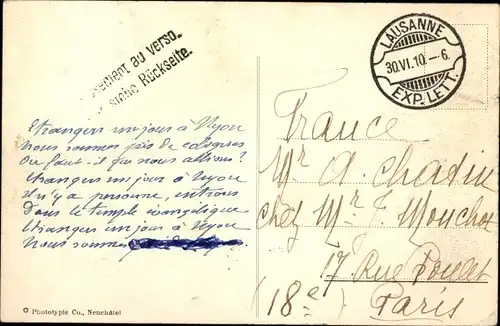 pédient au verso.
siehe Rückseite.
LAUSANNE
30.VI.10.-6.
EXP. LETT.
Etrangers un jour à Nyon
Nous sommes près de
Où faut-il que nous allions?
Etrangers un jour à Nyon
Il n'y a personne, entrons
Dans le temple évangélique
Etrangers un jour à Nyon
Nous sommes
France
Mr A. Chatin
chez Mr J. Mouchot
17 Rue Poulet
(18e) Paris
Phototypie Co., Neuchâtel